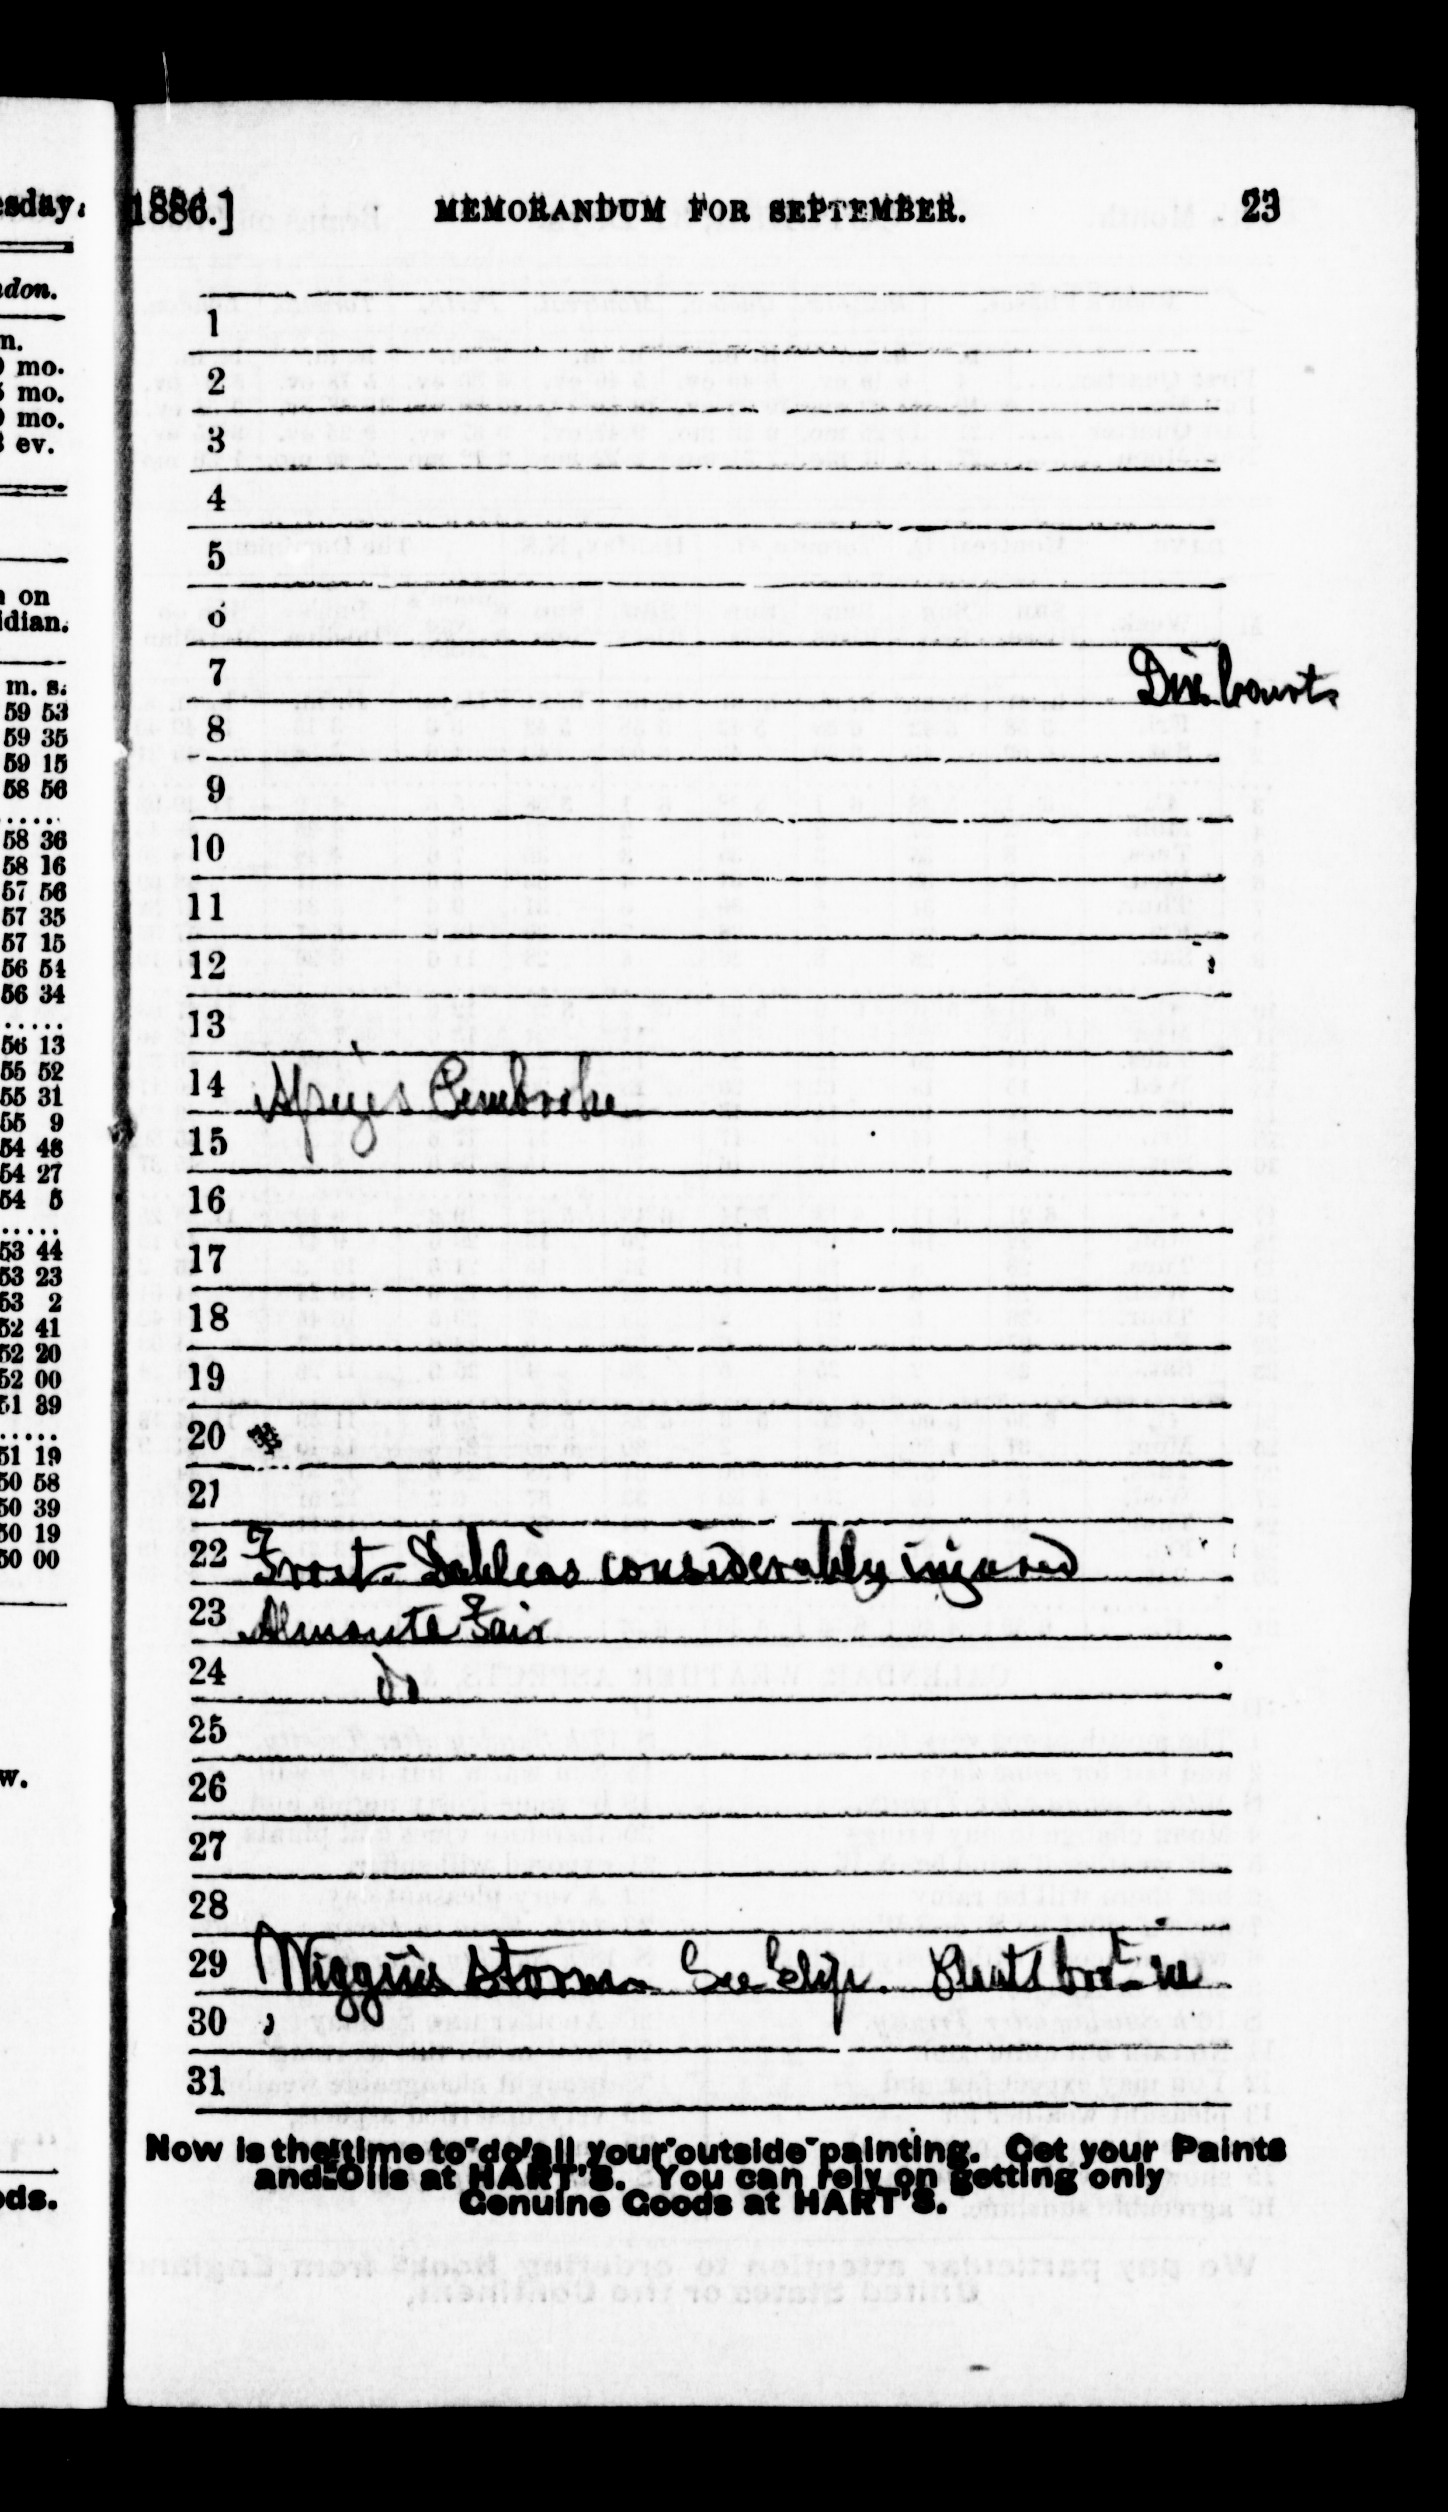 esday.
don.
m.
mo.
mo.
mo.
ev.
on
idian.
m. s.
59 53
59 35
59 15
58 56
.....
58 36
58 16
57 56
57 35
57 15
56 54
56 34
.....
56 13
55 52
55 31
55 9
54 48
54 27
54 5
.....
53 44
53 23
53 2
52 41
52 20
52 00
51 39
.....
51 19
50 58
50 39
50 19
50 00
w.
ds.
1886.] MEMORANDUM FOR SEPTEMBER. 23
1
2
3
4
5
6
7 Div. Court.
8
9
10
11
12
13
14 Pembroke
15
16
17
18
19
20
21
22 Frost. Dahlias considerably injured
23 Almonte Fair
24 do
25
26
27
28
29 Wiggins Storm. See clip. in
30
31
Now is the time to do all your outside painting. Get your Paints
and Oils at HART'S. You can rely on getting only
Genuine Goods at HART'S.